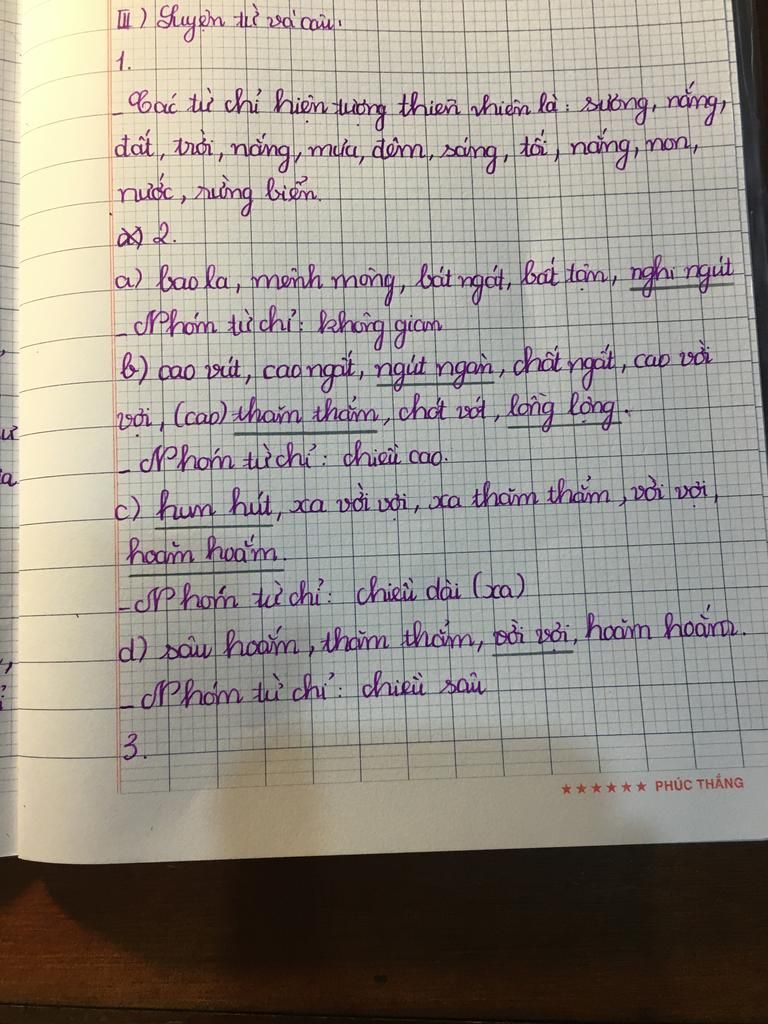 III) Luyện từ và câu:
1.
_ Các từ chỉ hiện tượng thiên nhiên là: sương, nắng,
đất, trời, nắng, mưa, đêm, sáng, tối, nắng, non,
nước, rừng biển.
2.
a) bao la, mênh mông, bát ngát, bất tận, nghi ngút
_ Nhóm từ chỉ: không gian
b) cao vút, cao ngất, ngút ngàn, chất ngất, cao vời
vợi, (cao) thăm thẳm, chót vót, lồng lộng.
_ Nhóm từ chỉ: chiều cao.
c) hun hút, xa vời vợi, xa thăm thẳm, vời vợi,
hoăm hoắm.
_ Nhóm từ chỉ: chiều dài (xa)
d) sâu hoắm, thăm thẳm, vời vợi, hoăm hoắm.
_ Nhóm từ chỉ: chiều sâu
3.
★★★★★★ PHÚC THẮNG